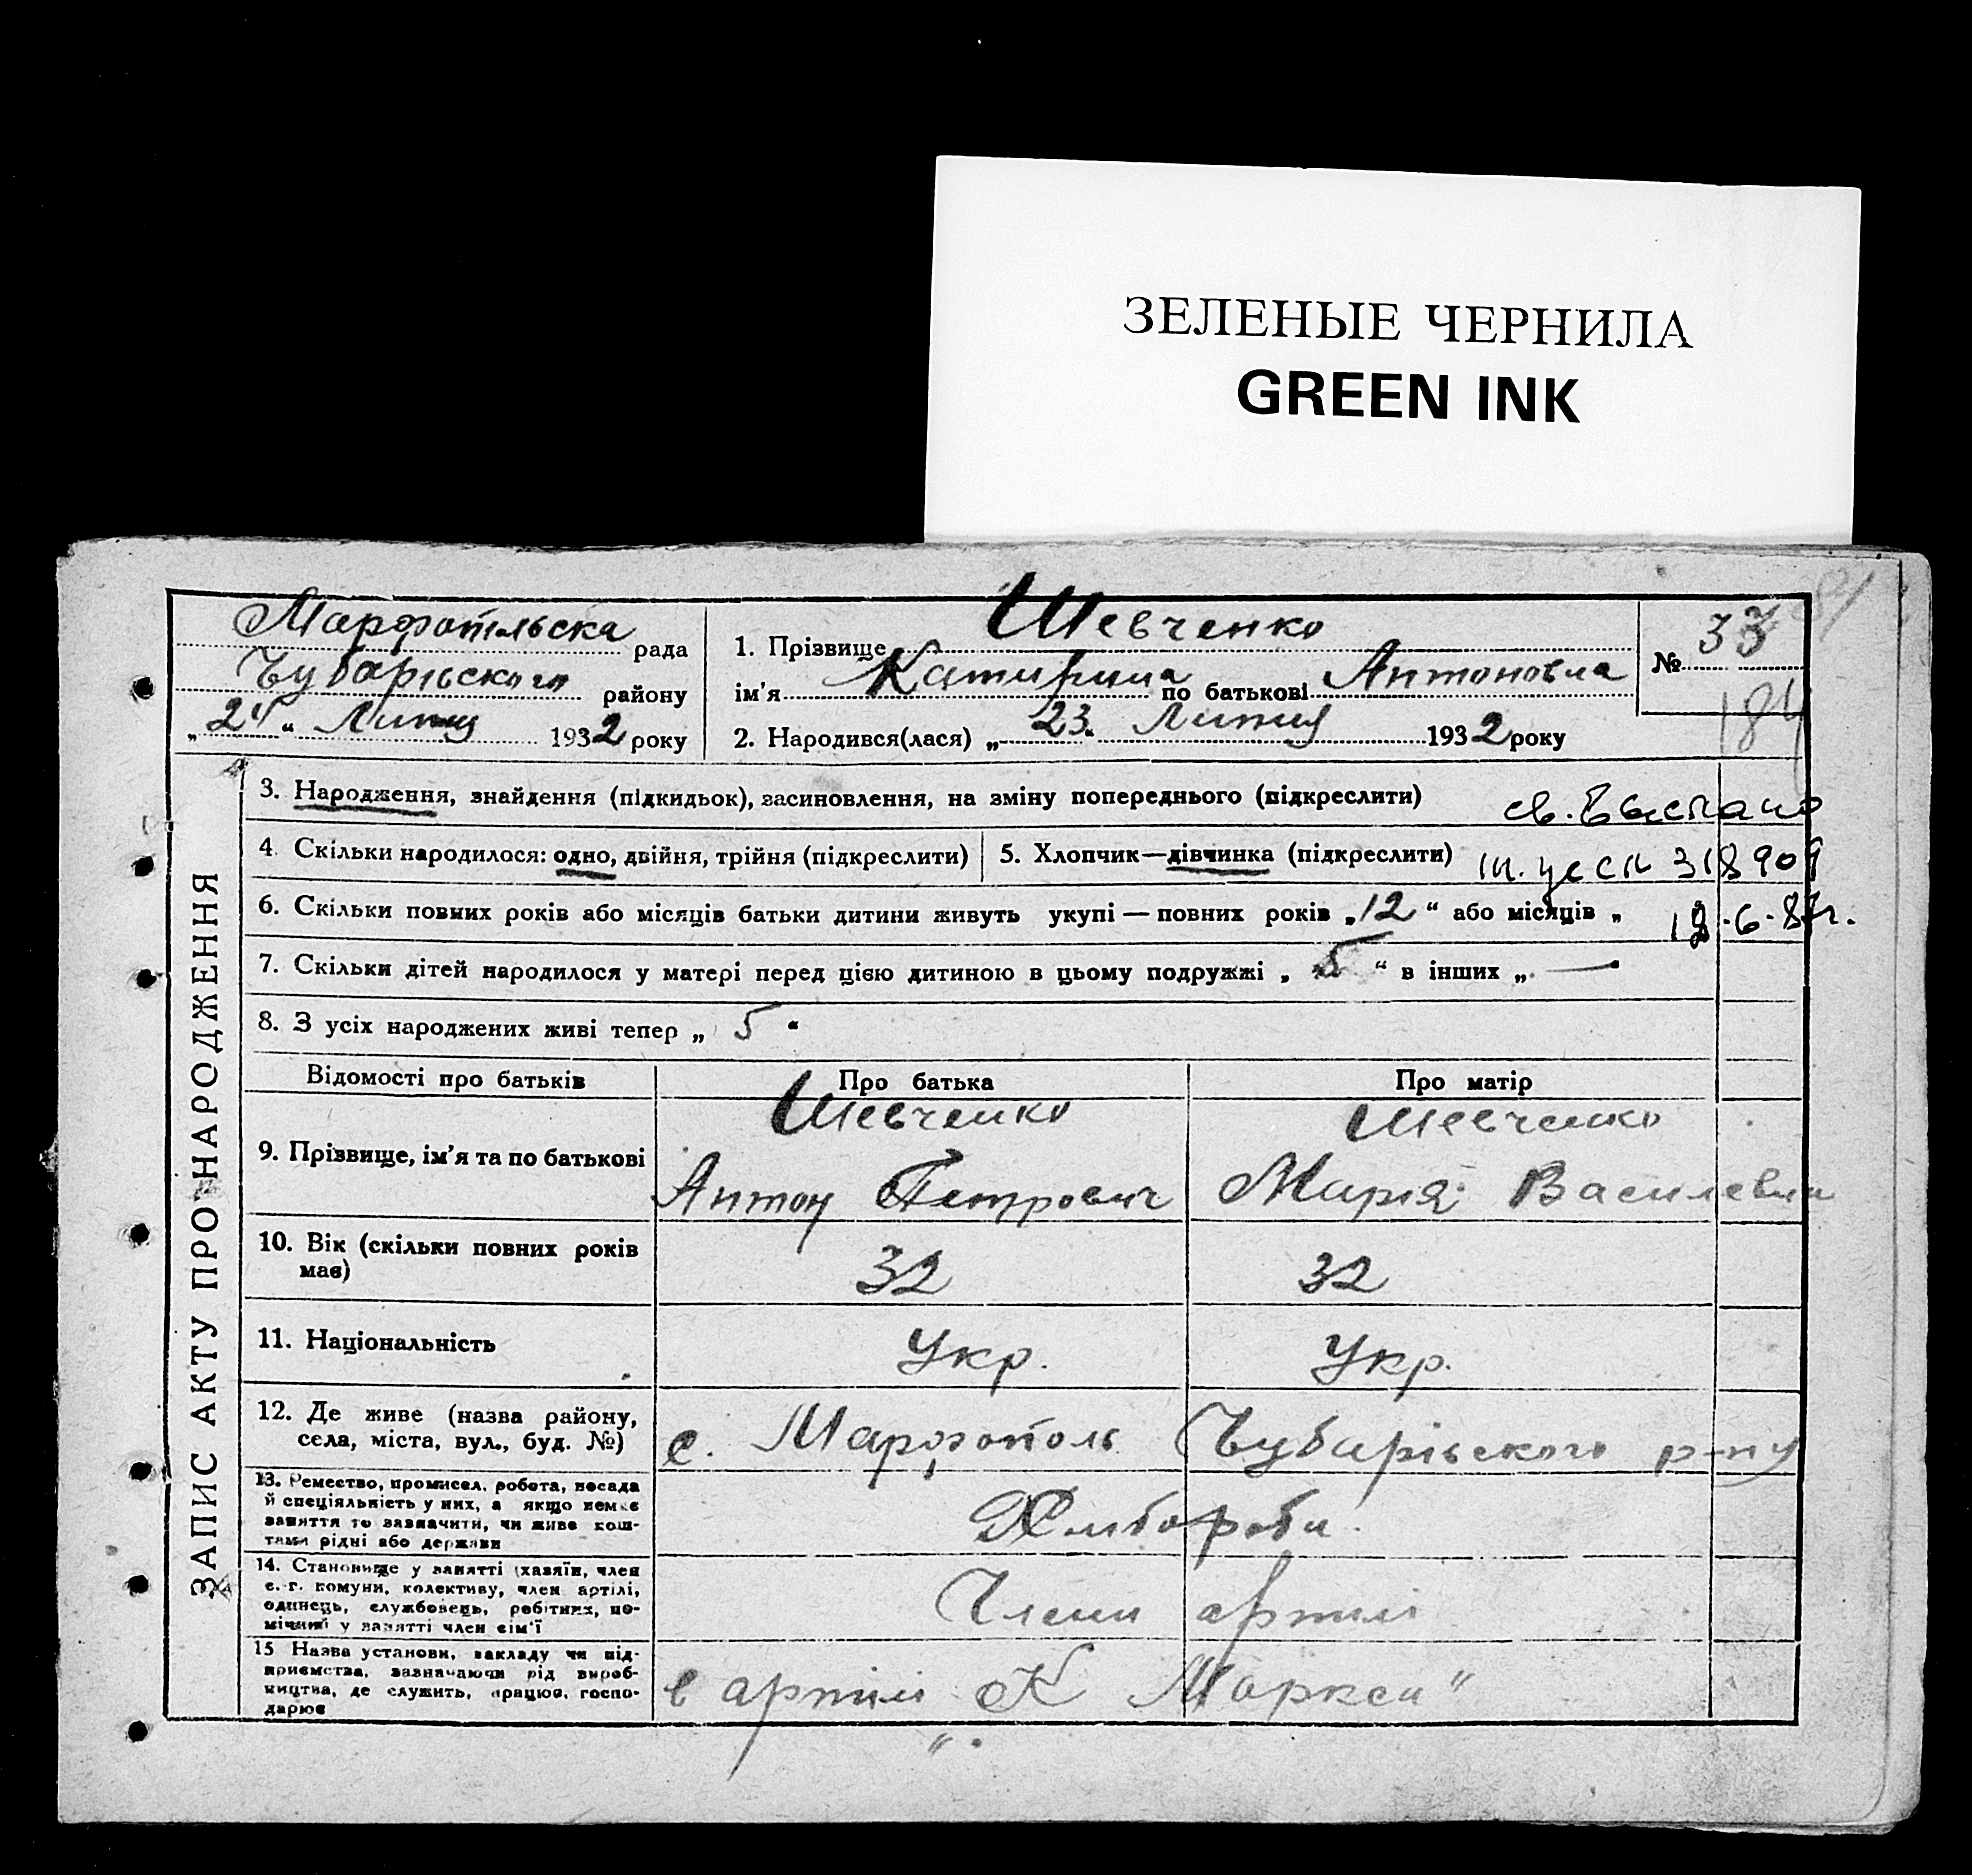 ЗЕЛЕНЫЕ ЧЕРНИЛА
GREEN INK
Марфопільска рада
Чубарівського району
„24“ Липня 1932 року
1. Прізвище Шевченко
ім'я Катирина по батькові Антоновна
2. Народився(лася) „23“ Липня 1932 року
№ 33
184
ЗАПИС АКТУ ПРО НАРОДЖЕННЯ
3. Народження, знайдення (підкидьок), засиновлення, на зміну попереднього (підкреслити)
св.
4. Скільки народилося: одно, двійня, трійня (підкреслити)
5. Хлопчик—дівчинка (підкреслити)
318909
6. Скільки повних років або місяців батьки дитини живуть укупі — повних років „12“ або місяців „
12.6.87г.
7. Скільки дітей народилося у матері перед цією дитиною в цьому подружжі „5“ в інших „—“
8. З усіх народжених живі тепер „5“
Відомості про батьків Про батька Про матір
9. Прізвище, ім'я та по батькові
Шевченко Шевченко
Антон Петрович Марія Василевна
10. Вік (скільки повних років має)
32 32
11. Національність
Укр. Укр.
12. Де живе (назва району, села, міста, вул., буд. №)
с. Марфополь Чубарівського р-ну
13. Ремество, промисел, робота, посада й спеціяльність у них, а якщо немає заняття то зазначити, чи живе коштами рідні або держави
Хлибороби.
14. Становище у занятті (хазяїн, член с.-г. комуни, колективу, член артілі, одинець, службовець, робітник, помічний у занятті член сім'ї
Члени артилі
15 Назва установи, закладу чи підприємства, зазначаючи рід виробництва, де служить, працює, господарює
в артилі „К Маркса“